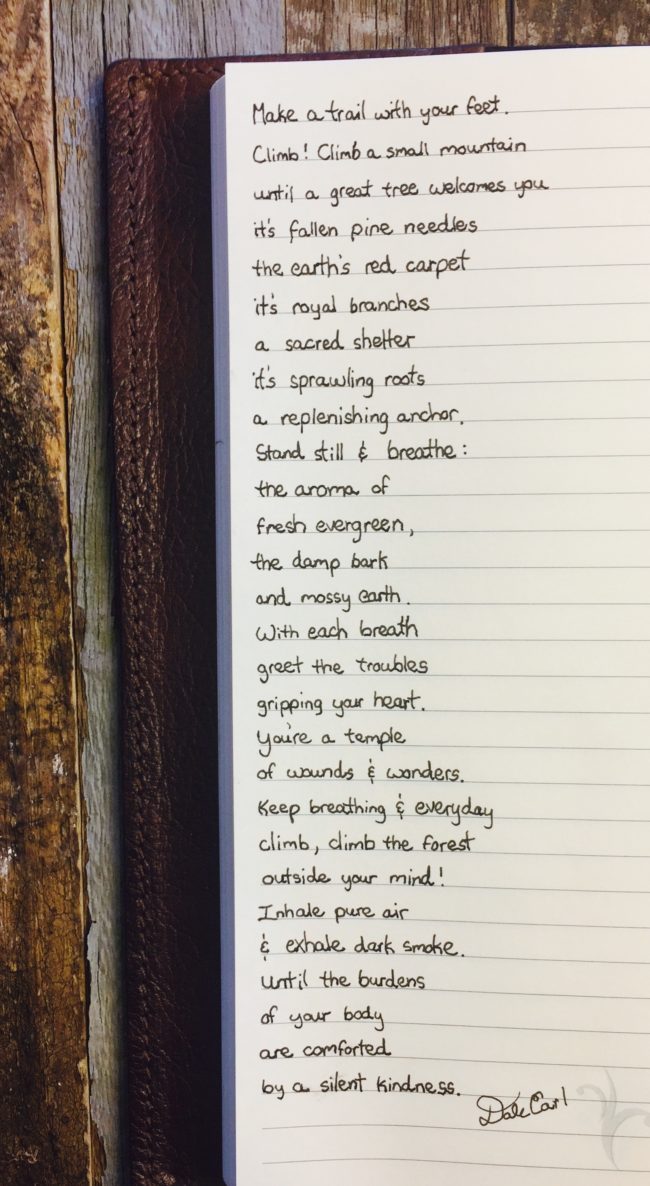 Make a trail with your feet.
Climb! Climb a small mountain
until a great tree welcomes you
it's fallen pine needles
the earth's red carpet
it's royal branches
a sacred shelter
it's sprawling roots
a replenishing anchor.
Stand still & breathe:
the aroma of
fresh evergreen,
the damp bark
and mossy earth.
With each breath
greet the troubles
gripping your heart.
You're a temple
of wounds & wonders.
Keep breathing & everyday
climb, climb the forest
outside your mind!
Inhale pure air
& exhale dark smoke.
Until the burdens
of your body
are comforted
by a silent kindness.
Dale Carl